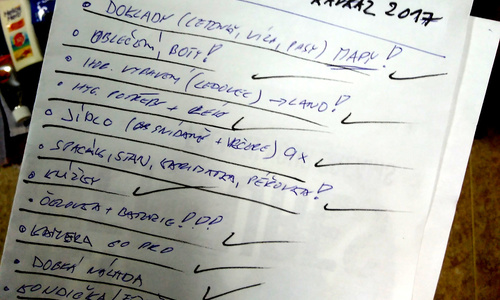 KAVKAZ 2017
• DOKLADY (LETENKY, VÍZA, PASY) MAPY!
• OBLEČENÍ, BOTY!
• HOR. VYBAVENÍ (LEDOVEC) → LANO!
• HYG. POTŘEBY +
• JÍDLO (8x SNÍDANĚ + VEČEŘE) 9x
• SPACÁK, STAN, KARIMATKA, PÉŘOVKA!
• KLÍČKY
• ČELOVKA + BATERIE!!!
• KAMERA GO PRO
• DOBRÁ NÁLADA
• KONDIČKA